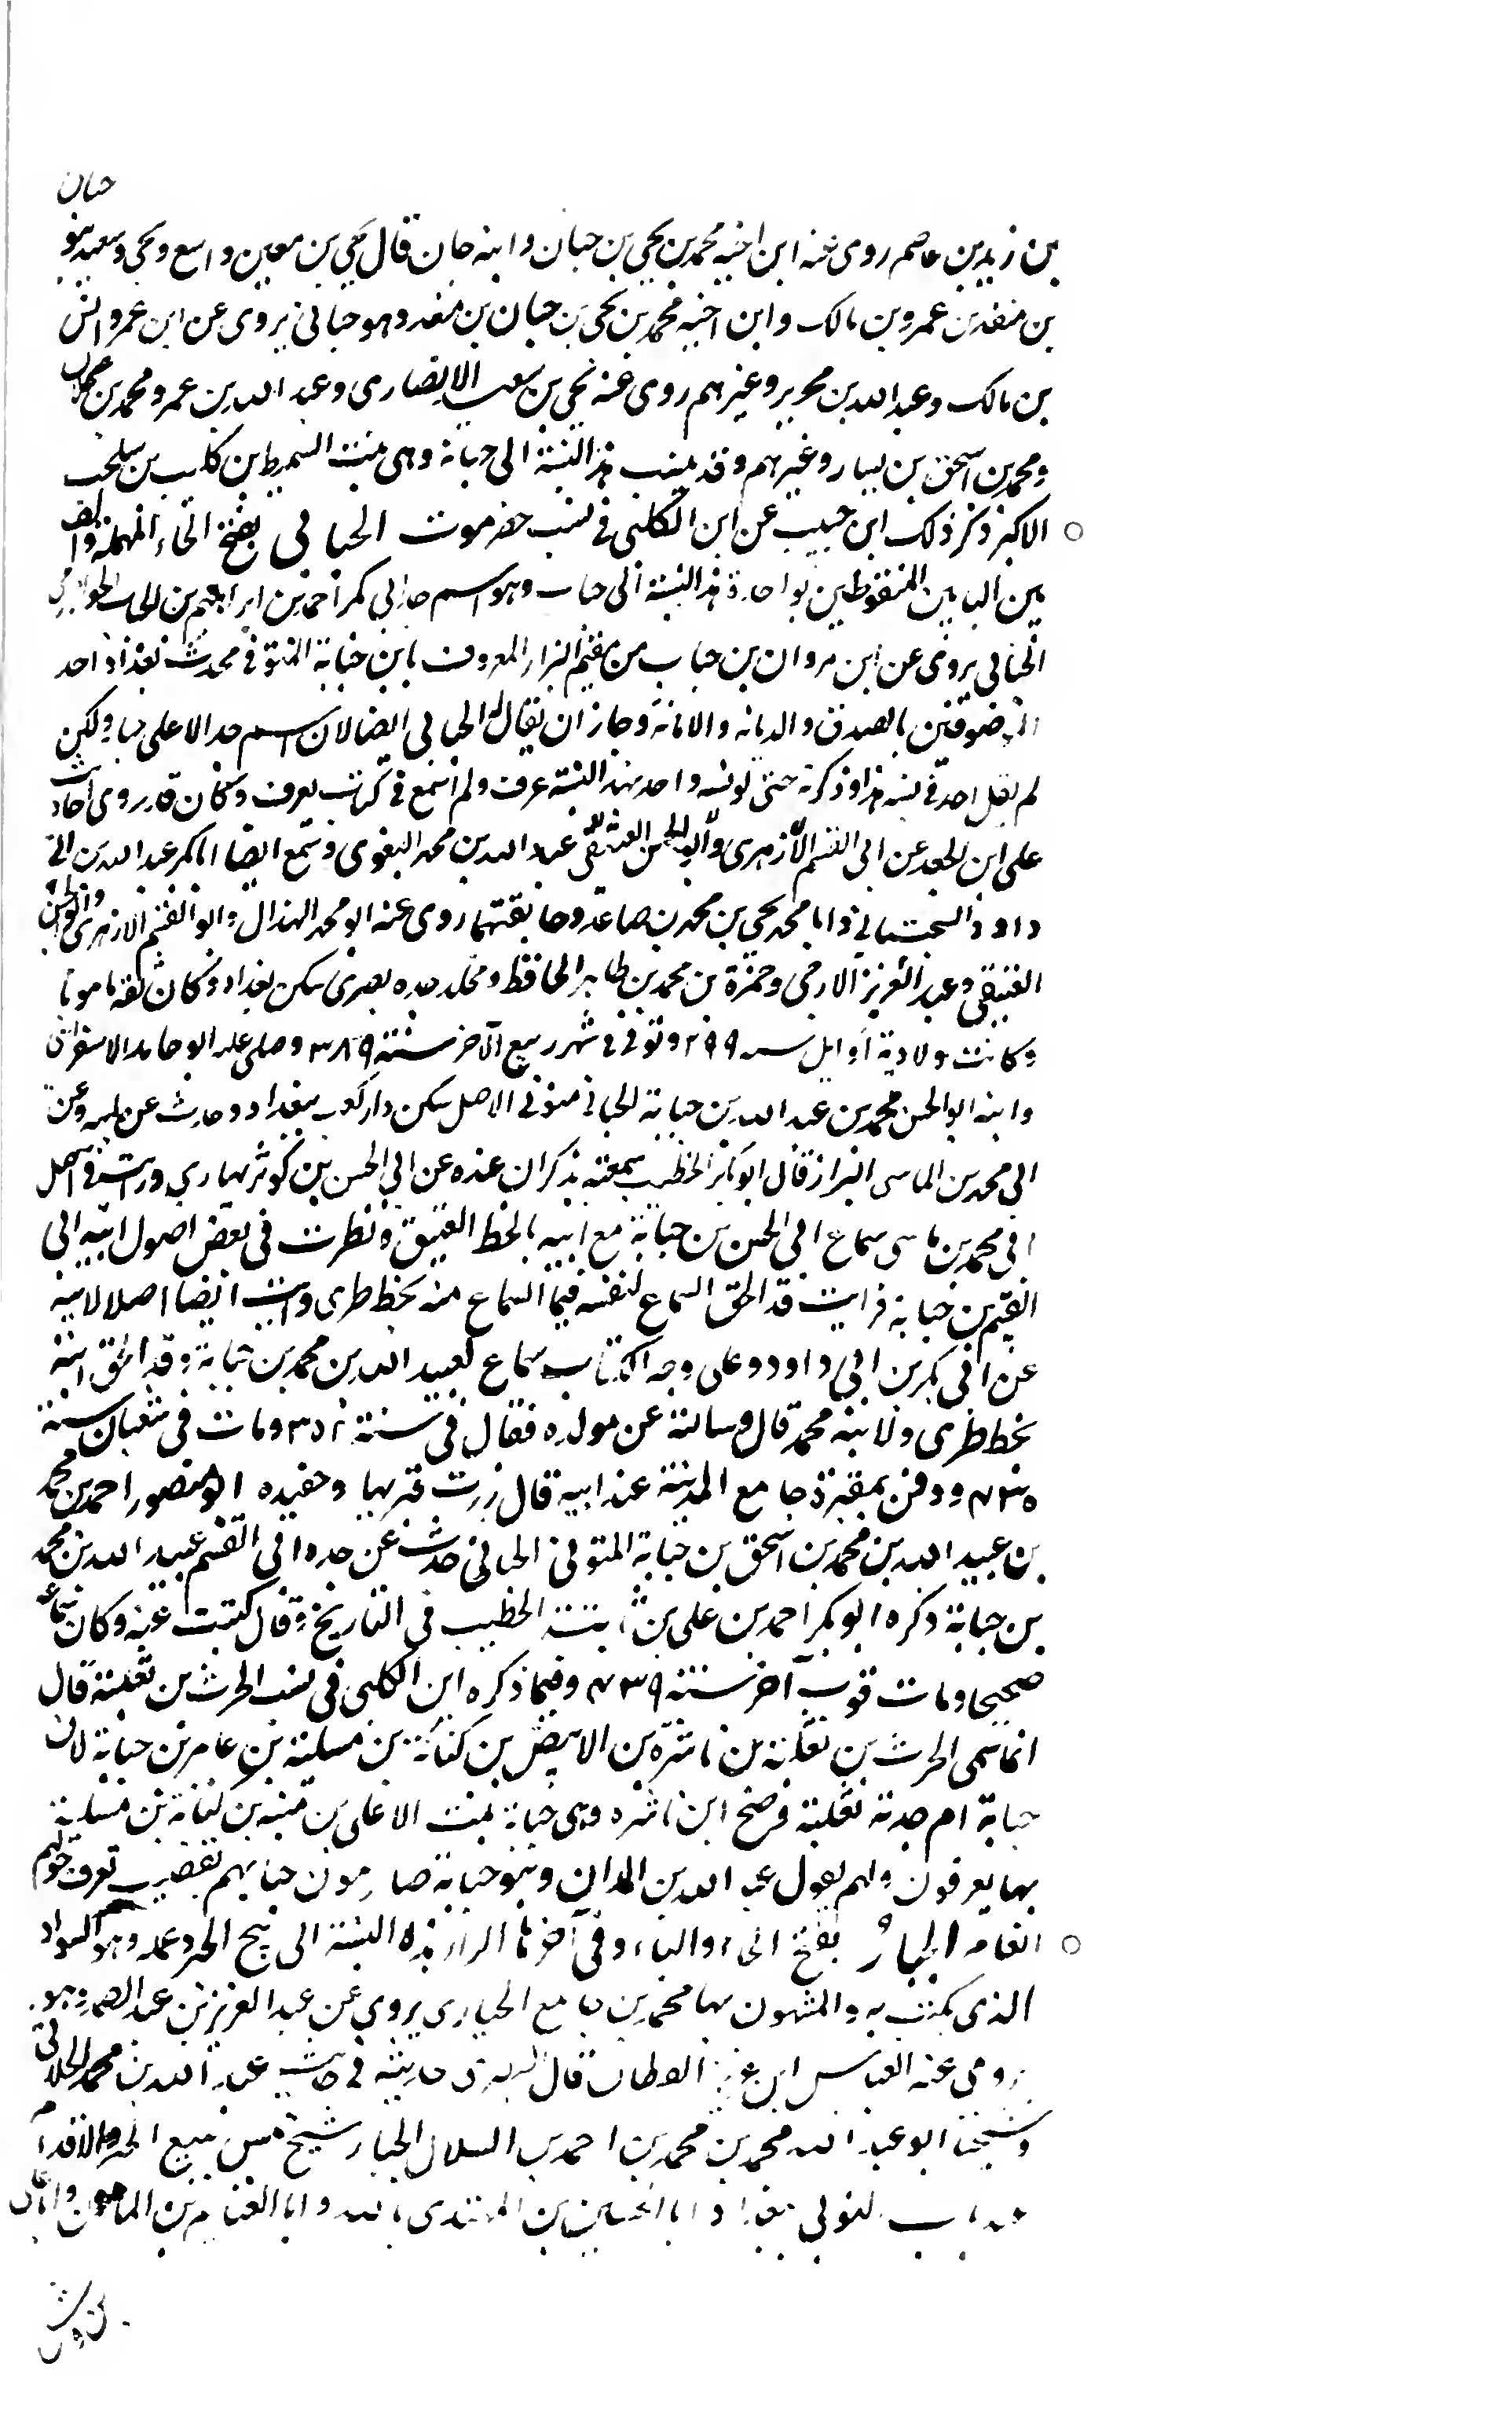 حبان
بن زيد بن عاصم روى عنه ابن اخيه محمد بن يحيى بن حبان وابنه حبان قال يحيى بن معين واسع ويحيى وسعيد بنو
بن منقذ بن عمرو بن مالك وابن اخيه محمد بن يحيى بن حبان بن منقذ وهو حباني يروى عن ابن عمر وانس
بن مالك وعبد الله بن محيريز وغيرهم روى عنه يحيى بن سعيد الانصارى وعبد الله بن عمر ومحمد بن عجلان
ومحمد بن اسحق بن يسار وغيرهم وقد ينسب هذا النسبة الى حبانة وهى بنت السميط بن كليب بن سلحب
الاكبر ذكر ذلك ابن حبيب عن ابن الكلبى فى نسب حضرموت الحبابى بفتح الحاء المهملة والالف
بين البايين المنقوطتين بواحدة هذا النسبة الى حباب وهو اسم جد ابى بكر احمد بن ابراهيم بن الحباب الخوارزمى
الحبابى يروى عن ابن مروان بن حباب بن تميم البزاز المعروف بابن حبابة المتوثى محدث بغداد احد
الموصوفين بالصدق والديانة والامانة وجاز ان يقال له الحبابى ايضا لان اسم جد الاعلى حباب ولكن
لم يقل احد فى نسبه هذا وذكرته حتى لو نسبه واحد بهذا النسبة عرف ولم اسمع فى كتاب يعرف وكان قد روى احاديث
على ابن الجعد عن ابى القسم الازهرى وابو الحسن العتيقى عبد الله بن محمد البغوى وسمع ايضا ابا بكر عبد الله بن ابى
داود السجستانى وابا محمد يحيى بن محمد بن صاعد وطبقتهما روى عنه ابو محمد الخلال وابو القسم الازهرى وابو الحسن
العتيقى وعبد العزيز الازجى وحمزة بن محمد بن طاهر الحافظ ومخلد جده بصرى سكن بغداد وكان ثقة مامونا
وكانت ولادته اوايل سنة ٢٩٩ وتوفى فى شهر ربيع الآخر سنة ٣٨٩ وصلى عليه ابو حامد الاسفراينى
وابنه ابو الحسن محمد بن عبد الله بن حبابة الحبابى متوثى الاصل سكن دار كعب ببغداد وحدث عن ابيه وعن
ابى محمد بن الماسى البزاز قال ابو بكر الخطيب سمعته يذكر ان عنده عن ابى الحسن بن كوثر بهارى ورايت فى اصل
ابى محمد بن ماسى سماع ابى الحسن بن حبابة مع ابيه بالخط العتيق ونظرت فى بعض اصول ابيه ابى
القسم بن حبابة فرايت قد الحق السماع لنفسه فيما السماع منه بخط طرى ورايت ايضا اصلا لابيه
عن ابى بكر بن ابى داود وعلى وجه الكتاب سماع لعبيد الله بن محمد بن حبابة وقد الحق ابنه
بخط طرى ولابنه محمد قال وسالته عن مولده فقال فى سنة ٣٥١ ومات فى شعبان سنة
٤٣٥ ودفن بمقبرة جامع المدينة عند ابيه قال زرت قبريهما وحفيده ابو منصور احمد بن محمد
بن عبيد الله بن محمد بن اسحق بن حبابة المتوثى الحبابى حدث عن جده ابى القسم عبيد الله بن محمد
بن حبابة ذكره ابو بكر احمد بن على بن ثابت الخطيب فى التاريخ وقال كتبت عنه وكان سماعه
صحيحا ومات قريب آخر سنة ٤٣٩ وفيما ذكره ابن الكلبى فى نسب الحرث بن ثعلبة قال
انما سمى الحرث بن ثعلبة بن ناشرة بن الابيض بن كنانة بن مسلية بن عامر بن حبابة لان
حبابة ام جدته ثعلبة فرضخ ابن ناشره وهى حبابة بنت الاعلى بن منبه بن كنانة بن مسلية
بها يعرفون ولهم يقول عبد الله بن المدان وبنو حبابة ضاربون حبابهم بقضيب تعرف حولهم
انعام الحبار بفتح الحاء والباء وفى آخرها الراء هذه النسبة الى بيع الحبر وعمله وهو السواد
الذى يكتب به والمشهور بها محمد بن جامع الحبارى يروى عن عبد العزيز بن عبد الصمد وهو
روى عنه العباس ابن عزيز القطان قال حديثه فى حديث عبد الله بن محمد الحلابى
وشيخنا ابو عبد الله محمد بن محمد بن احمد بن السلال الحبار شيخ مسن يبيع الحبر والاقلام
عند باب النوبى ببغداد ابا الحسين بن المهتدى بالله وابا الغنايم بن المامون وابا